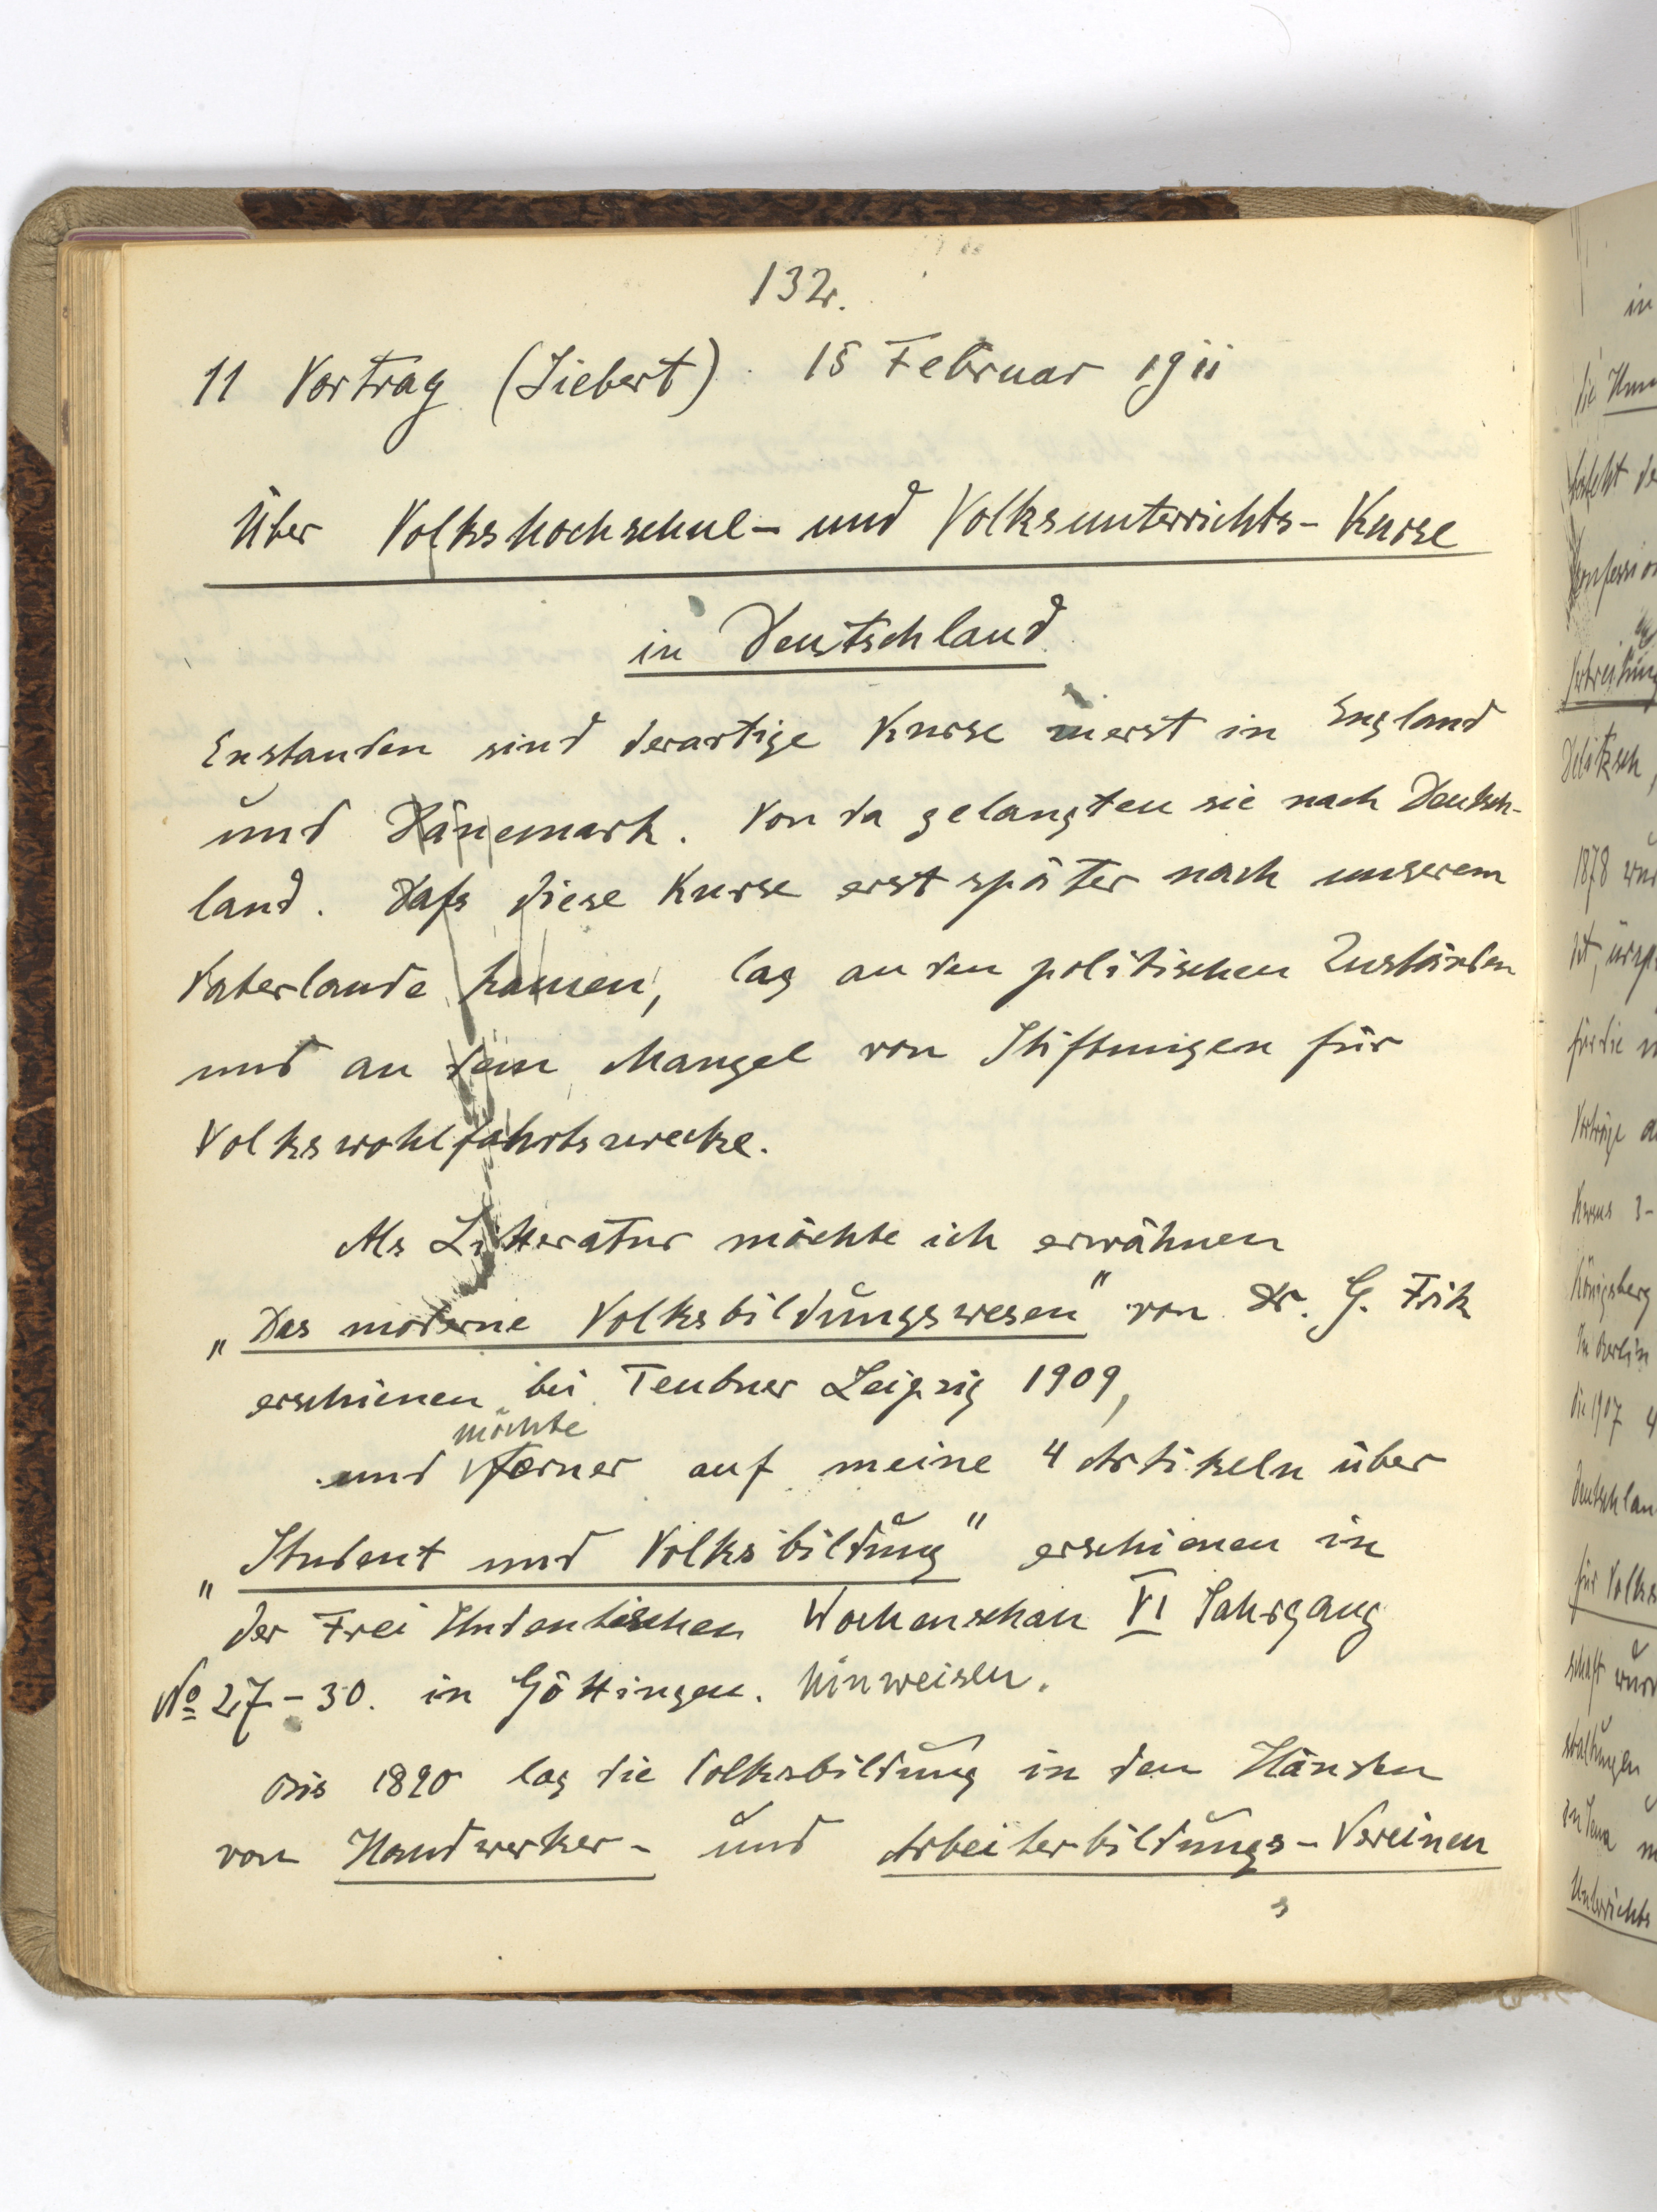 132.
11 Vortrag (Siebert). 15 Februar 1911
Über Volkshochschul- und Volksunterrichts-Kurse
in Deutschland.
Enstanden sind derartige Kurse zuerst in England
und Dänemark. Von da gelangten sie nach Deutsch-
land. Dass diese Kurse erst später nach unserem
Vaterlande kamen, lag an den politischen Zuständen
und an dem Mangel von Stiftungen für
Volkswohlfahrtszwecke.
Als Litteratur möchte ich erwähnen
„Das moderne Volksbildungswesen" von Dr. G. Frik
erschienen bei Teubner Leipzig 1909,
möchte
und ferner auf meine 4 Artikeln über
„Student und Volksbildung" erschienen in
der Frei Studentischen Wochenschau VI Jahrgang
No 27-30. in Göttingen. hinweisen.
Bis 1890 lag die Volksbildung in den Händen
von Handwerker- und Arbeiterbildungs-Vereinen
in
die
Delitzsch,
1878
für die
Vorträge
Kursus 3-
Königsberg
In Berlin
die 1907 4
Deutschlan
für Volks
in Jena
Unterrichts